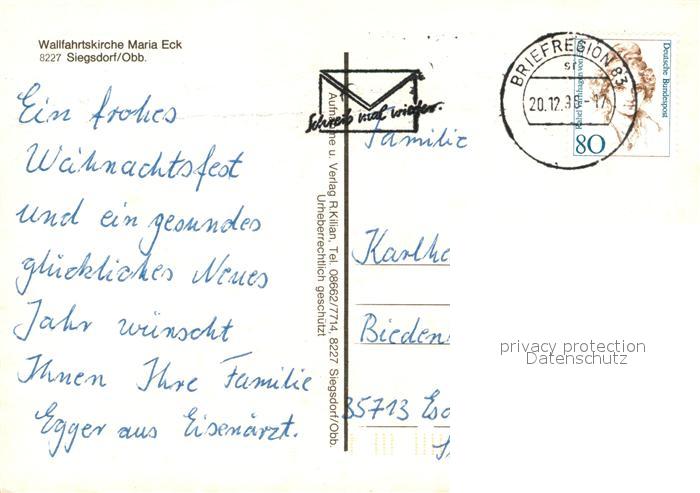 Wallfahrtskirche Maria Eck
8227 Siegsdorf/Obb.
Ein frohes
Weihnachtsfest
und ein gesundes
glückliches Neues
Jahr wünscht
Ihnen Ihre Familie
Egger aus Eisenärzt.
Aufnahme u. Verlag R.Kilian, Tel. 08662/7714, 8227 Siegsdorf/Obb.
Urheberrechtlich geschützt
Schreib mal wieder.
BRIEFREGION 83
20.12.9 -17
Deutsche Bundespost
80
Familie
Karlhe
Bieden
35713 Esc
privacy protection
Datenschutz